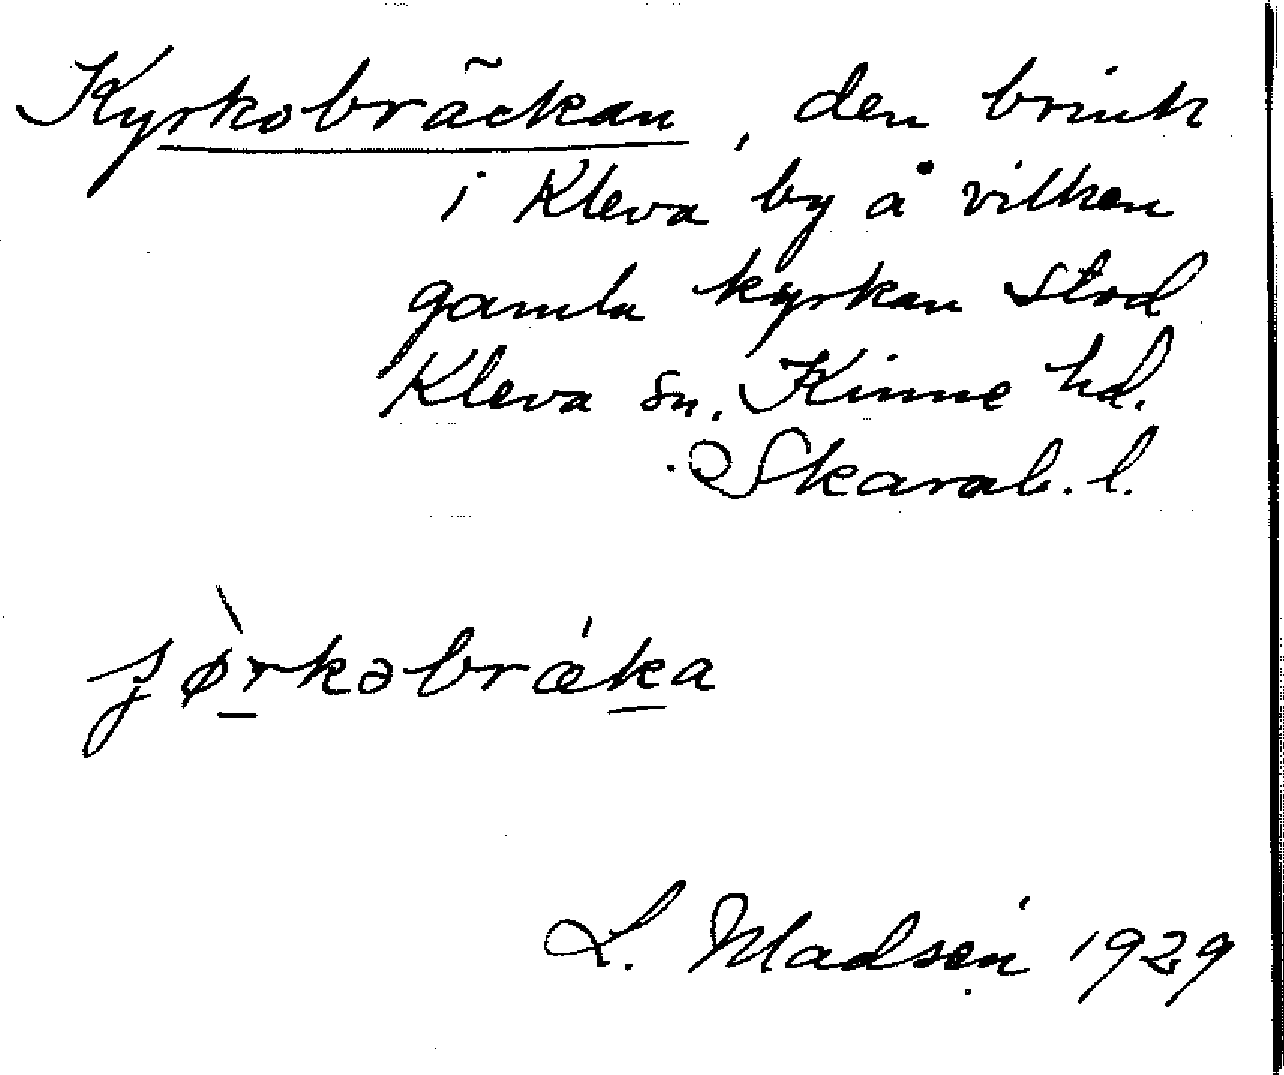 Kyrkobräckan, den brink
i Kleva by å vilken
gamla kyrkan stod
Kleva sn. Kinne hd.
Skarab. l.
L. Madsén 1929